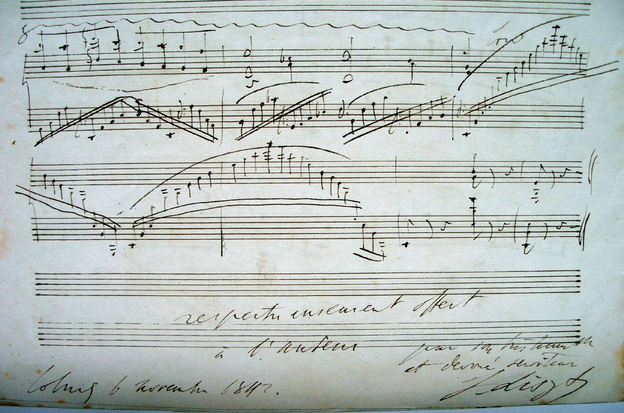 respectueusement offert
à l'auteur
par son très humble
et dévoué serviteur
F Liszt
Cobourg 6 novembre 1842.